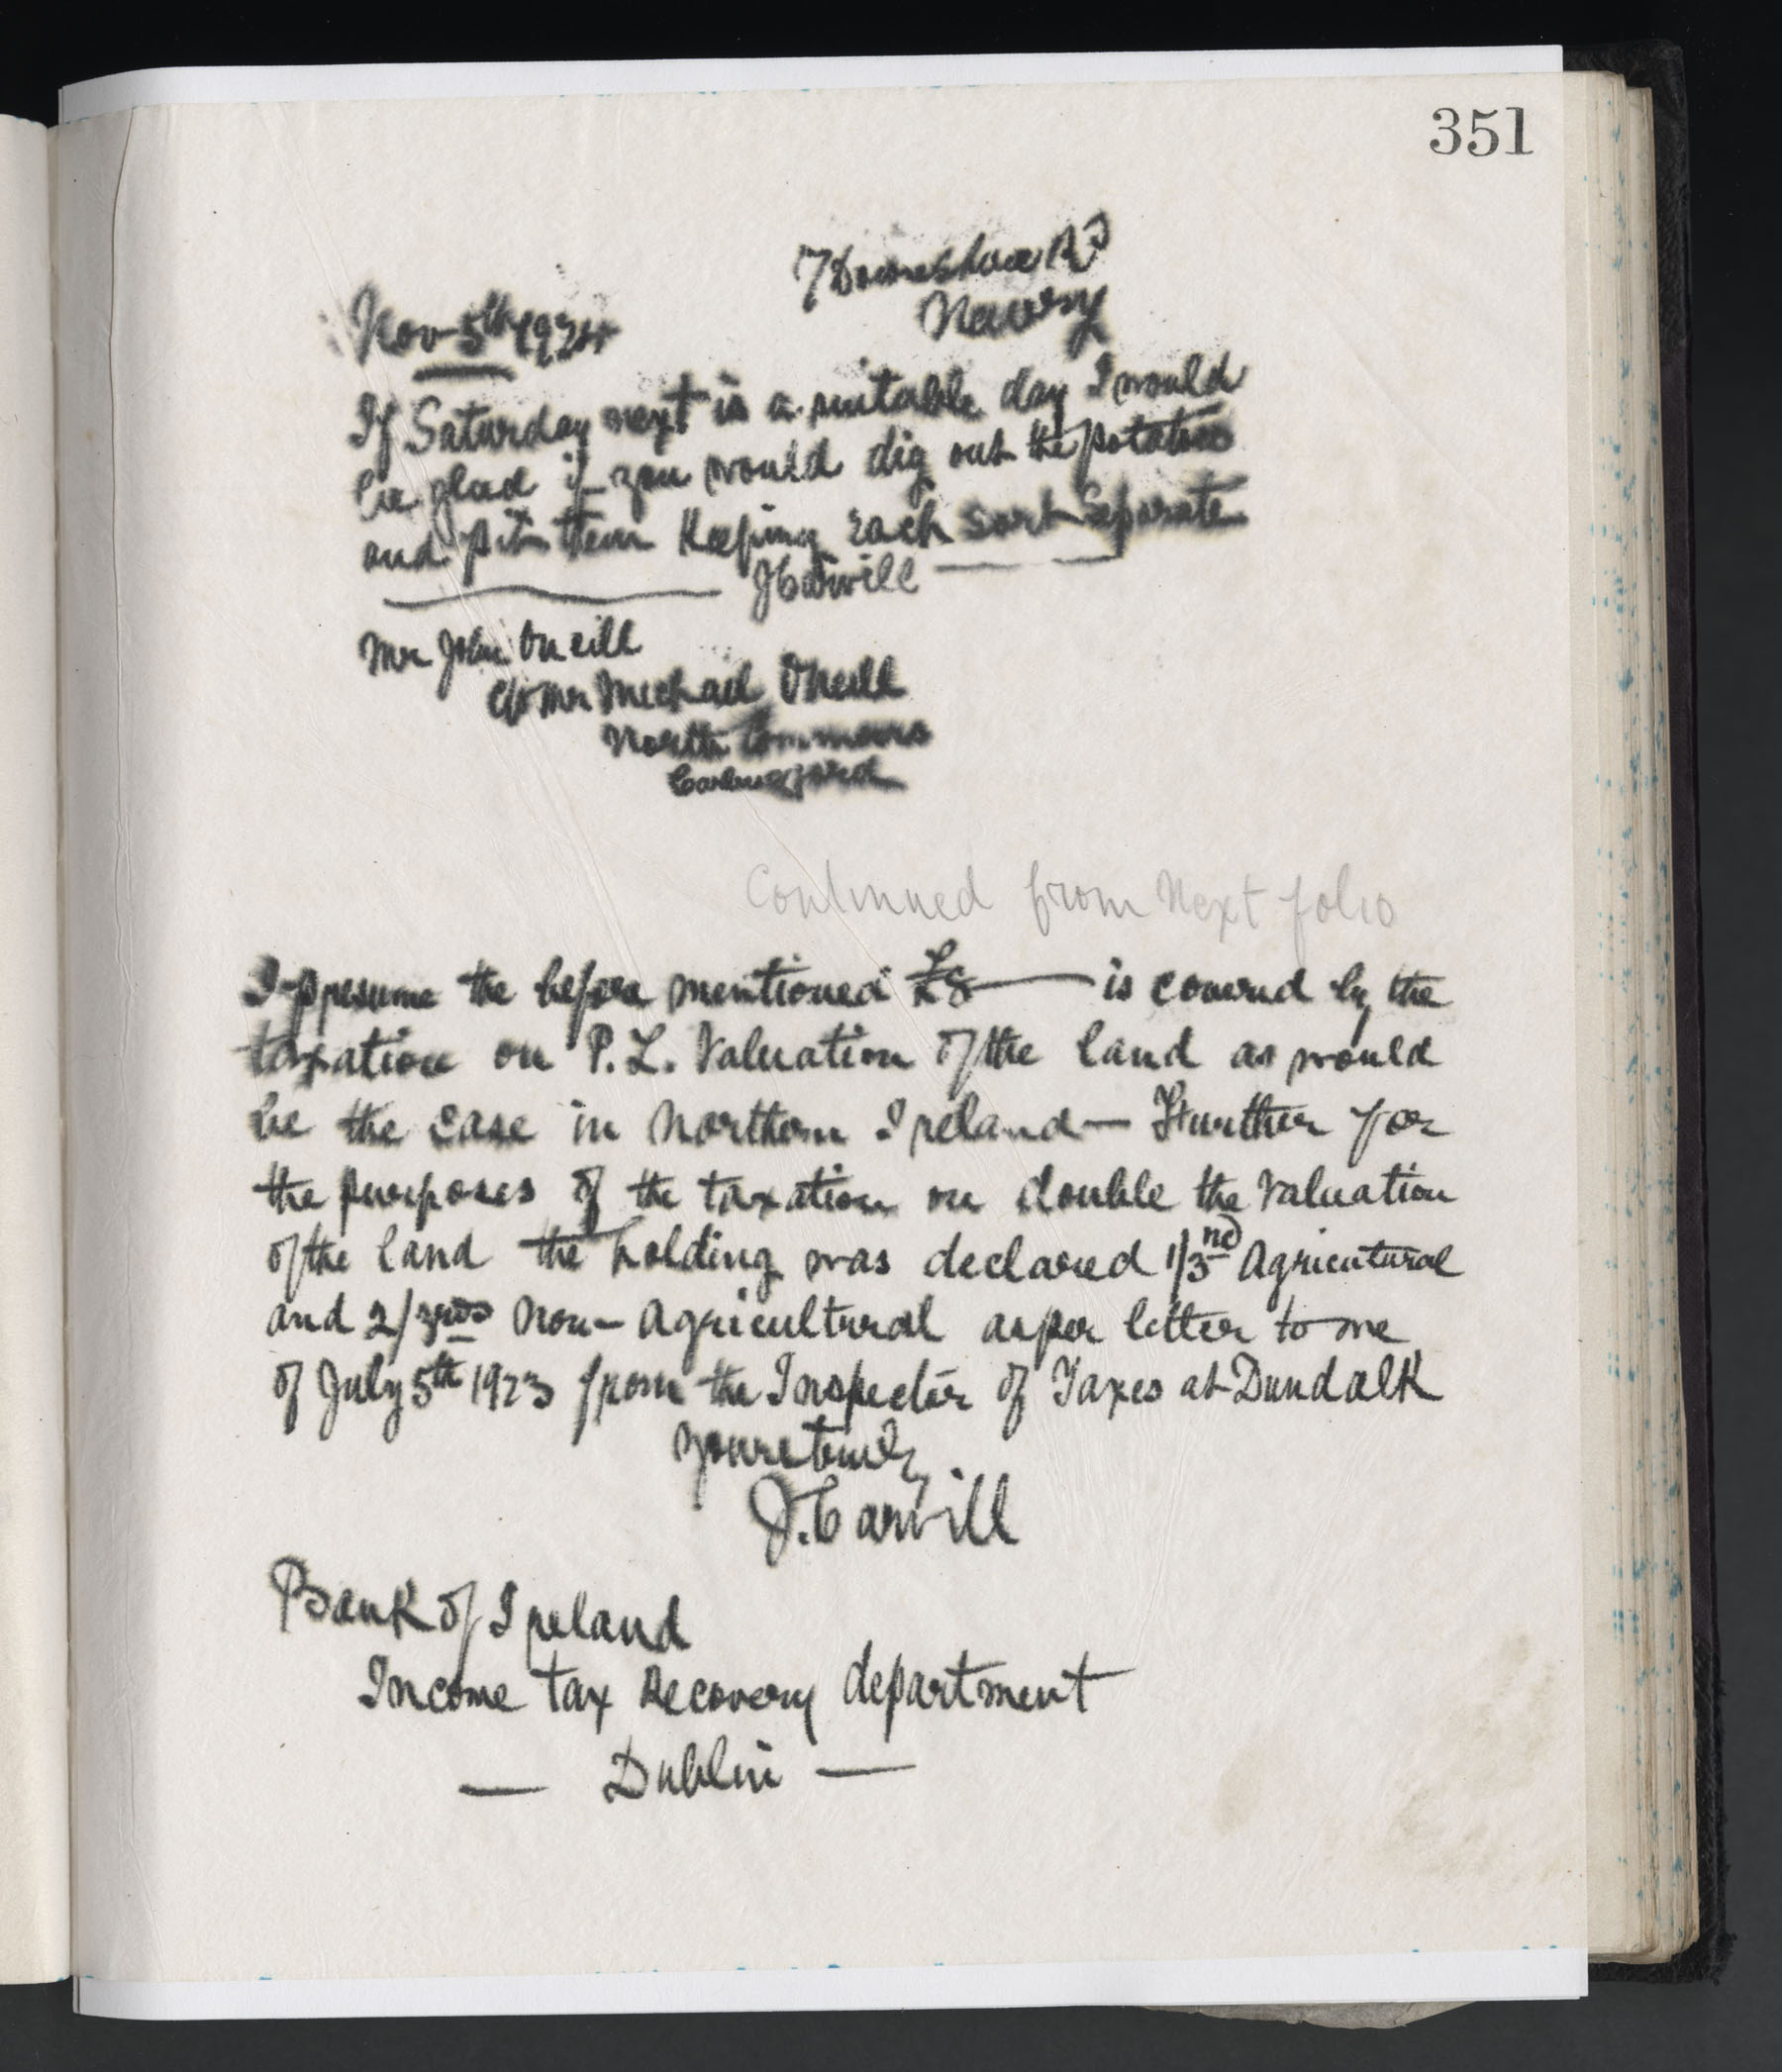 351
7 Downshire Rd
Newry
Nov 5th 1924
If Saturday next is a suitable day I would
be glad if you would dig out the potatoes
and pit them Keeping Each Sort Separate
J Carvill
Mr John ONeill
C/o Mr Michael ONeill
North Commons
Carlingford
Continued from Next folio
I presume the before mentioned £8 — is covered by the
taxation on P.L. Valuation of the land as would
be the case in Northern Ireland — Further for
the purposes of the taxation on double the Valuation
of the land the holding was declared 1/3nd Agricutural
and 2/3rds Non-Agricultural as per letter to me
of July 5th 1923 from the Inspector of Taxes at Dundalk
Yours truly
J. Carvill
Bank of Ireland
Income tax Recovery department
— Dublin —